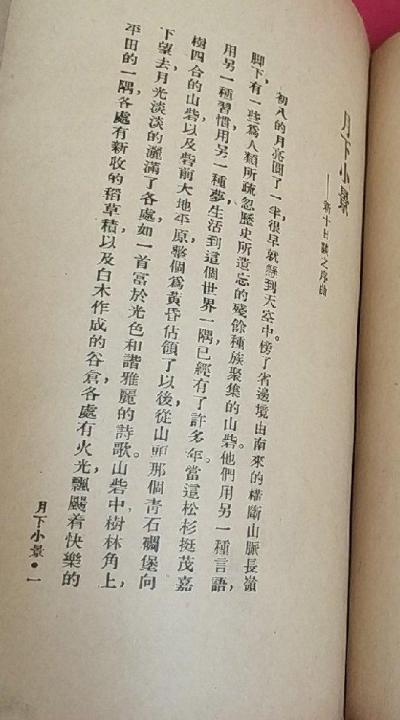 月下小景
——新十日談之序曲
初八的月亮圓了一半，很早就懸到天空中。傍了省邊境由南來的橫斷山脈長嶺
脚下，有一些爲人類所疏忽歷史所遺忘的殘餘種族聚集的山砦。他們用另一種言語，
用另一種習慣，用另一種夢，生活到這個世界一隅，已經有了許多年。當這松杉挺茂嘉
樹四合的山砦，以及砦前大地平原，整個爲黃昏佔領了以後，從山頭那個青石碉堡向
下望去，月光淡淡的灑滿了各處，如一首富於光色和諧雅麗的詩歌。山砦中，樹林角上，
平田的一隅，各處有新收的稻草積，以及白木作成的谷倉。各處有火光，飄颺着快樂的
月下小景•一